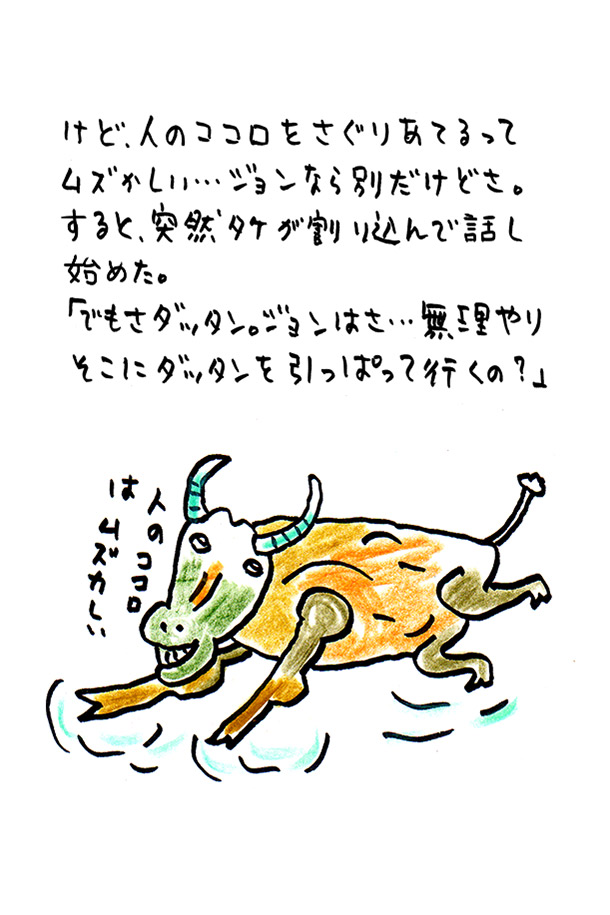 けど、人のココロをさぐりあてるって
ムズかしい…ジョンなら別だけどさ。
すると、突然タケが割り込んで話し
始めた。
「でもさダッタン。ジョンはさ…無理やり
そこにダッタンを引っぱって行くの?」
人のココロ
はムズカしい